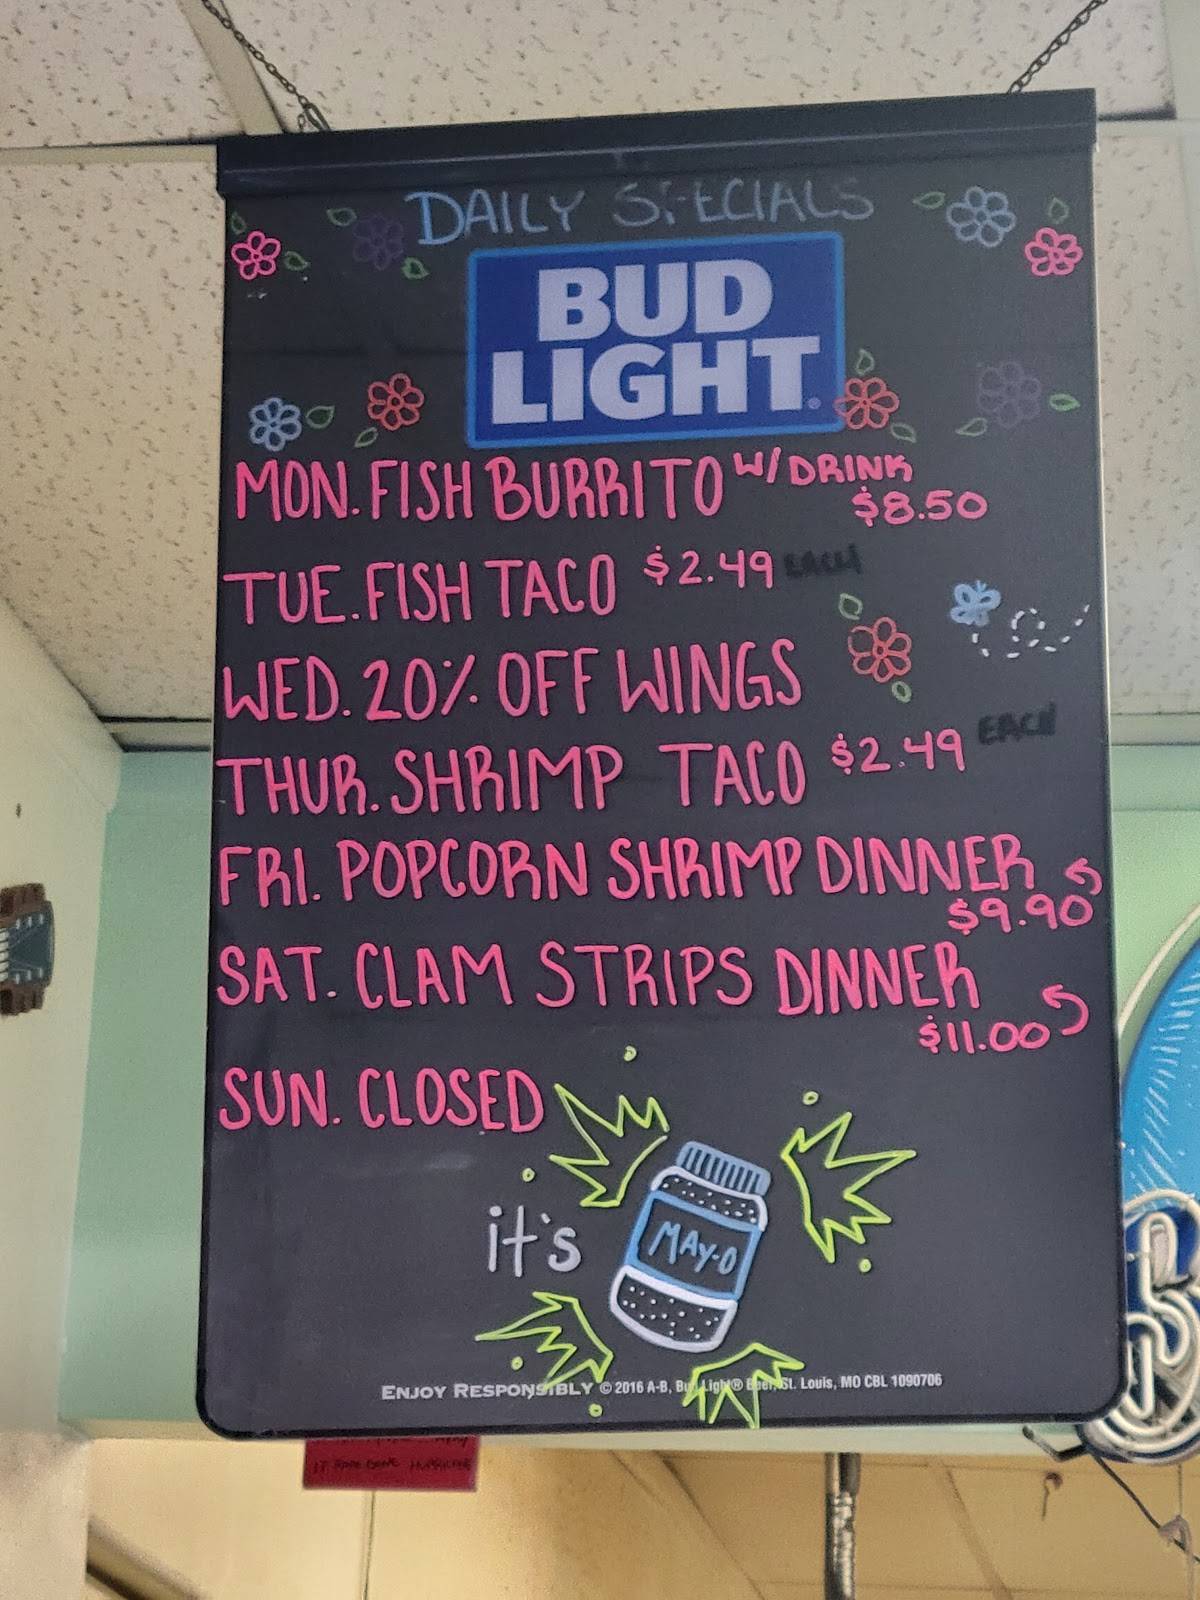 DAILY SPECIALS
BUD
LIGHT®
MON. FISH BURRITO W/ DRINK
$8.50
TUE. FISH TACO $2.49 EACH
WED. 20% OFF WINGS
THUR. SHRIMP TACO $2.49 EACH
FRI. POPCORN SHRIMP DINNER
$9.90
SAT. CLAM STRIPS DINNER
$11.00
SUN. CLOSED
it's
MAY-O
ENJOY RESPONSIBLY © 2016 A-B, Bud Light® Beer, St. Louis, MO CBL 1090706